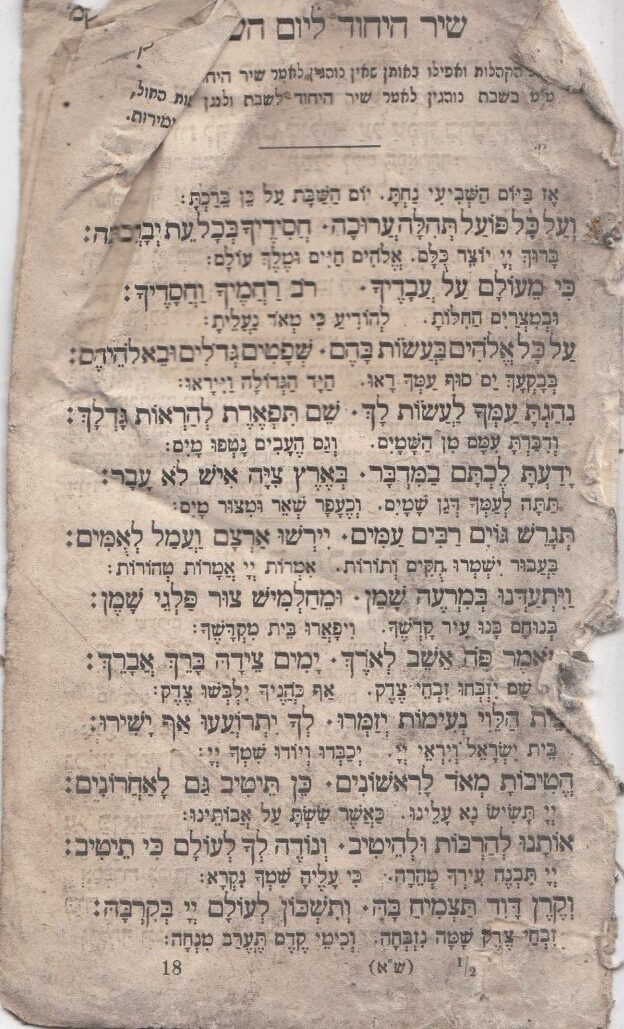 שיר היחוד ליום הש
הקהלות ואפילו באותן שאין נוהגין לאמר שיר היח
בשבת נוהגין לאמר שיר היחוד לשבת ולנגן
ות החול,
זמירות.
אָז בַּיּוֹם הַשְּׁבִיעִי נַחְתָּ. יוֹם הַשַּׁבָּת עַל כֵּן בֵּרַכְתָּ:
וְעַל כָּל פּוֹעַל תְּהִלָּה עֲרוּכָה. חֲסִידֶיךָ בְּכָל עֵת יְבָרְכוּכָה:
בָּרוּךְ יְיָ יוֹצֵר כֻּלָּם. אֱלֹהִים חַיִּים וּמֶלֶךְ עוֹלָם:
כִּי מֵעוֹלָם עַל עֲבָדֶיךָ. רֹב רַחֲמֶיךָ וַחֲסָדֶיךָ:
וּבְמִצְרַיִם הַחִלּוֹתָ. לְהוֹדִיעַ כִּי מְאֹד נַעֲלֵיתָ:
עַל כָּל אֱלֹהִים בַּעֲשׂוֹת בָּהֶם. שְׁפָטִים גְּדֹלִים וּבֵאלֹהֵיהֶם:
בְּבָקְעֲךָ יַם סוּף עַמְּךָ רָאוּ. הַיָּד הַגְּדוֹלָה וַיִּירָאוּ:
נִהַגְתָּ עַמְּךָ לַעֲשׂוֹת לָךְ. שֵׁם תִּפְאֶרֶת לְהַרְאוֹת גָּדְלָךְ:
וְדִבַּרְתָּ עִמָּם מִן הַשָּׁמַיִם. וְגַם הֶעָבִים נָטְפוּ מָיִם:
יָדַעְתָּ לֶכְתָּם בַּמִּדְבָּר. בְּאֶרֶץ צִיָּה אִישׁ לֹא עָבָר:
תַּתָּה לְעַמְּךָ דְּגַן שָׁמַיִם. וְכֶעָפָר שְׁאֵר וּמִצּוּר מָיִם:
תְּגָרֵשׁ גּוֹיִם רַבִּים עַמִּים. יִירְשׁוּ אַרְצָם וַעֲמַל לְאֻמִּים:
בַּעֲבוּר יִשְׁמְרוּ חֻקִּים וְתוֹרוֹת. אִמְרוֹת יְיָ אֲמָרוֹת טְהוֹרוֹת:
וַיִּתְעַדְּנוּ בְּמִרְעֶה שָׁמֵן. וּמֵחַלְמִישׁ צוּר פַּלְגֵי שָׁמֶן:
בְּנוּחָם בָּנוּ עִיר קָדְשֶׁךָ. וַיְפָאֲרוּ בֵּית מִקְדָּשֶׁךָ:
וַתֹּאמֶר פֹּה אֵשֵׁב לְאֹרֶךְ. יָמִים צֵידָהּ בָּרֵךְ אֲבָרֵךְ:
שָׁם יִזְבְּחוּ זִבְחֵי צֶדֶק. אַף כֹּהֲנֶיךָ יִלְבְּשׁוּ צֶדֶק:
בֵּית הַלֵּוִי נְעִימוֹת יְזַמֵּרוּ. לְךָ יִתְרוֹעֲעוּ אַף יָשִׁירוּ:
בֵּית יִשְׂרָאֵל וְיִרְאֵי יְיָ. יְכַבְּדוּ וְיוֹדוּ שִׁמְךָ יְיָ:
הֱטִיבוֹת מְאֹד לָרִאשׁוֹנִים. כֵּן תֵּיטִיב גַּם לָאַחֲרוֹנִים:
יְיָ תָּשִׂישׂ נָא עָלֵינוּ. כַּאֲשֶׁר שַׂשְׂתָּ עַל אֲבוֹתֵינוּ:
אוֹתָנוּ לְהַרְבּוֹת וּלְהֵיטִיב. וְנוֹדֶה לְךָ לְעוֹלָם כִּי תֵיטִיב:
יְיָ תִּבְנֶה עִירְךָ מְהֵרָה. כִּי עָלֶיהָ שִׁמְךָ נִקְרָא:
וְקֶרֶן דָּוִד תַּצְמִיחַ בָּהּ. וְתִשְׁכּוֹן לְעוֹלָם יְיָ בְּקִרְבָּהּ:
זִבְחֵי צֶדֶק שָׁמָּה נִזְבְּחָה. וְכִימֵי קֶדֶם תֶּעֱרַב מִנְחָה:
18 (ש"א) 1/2